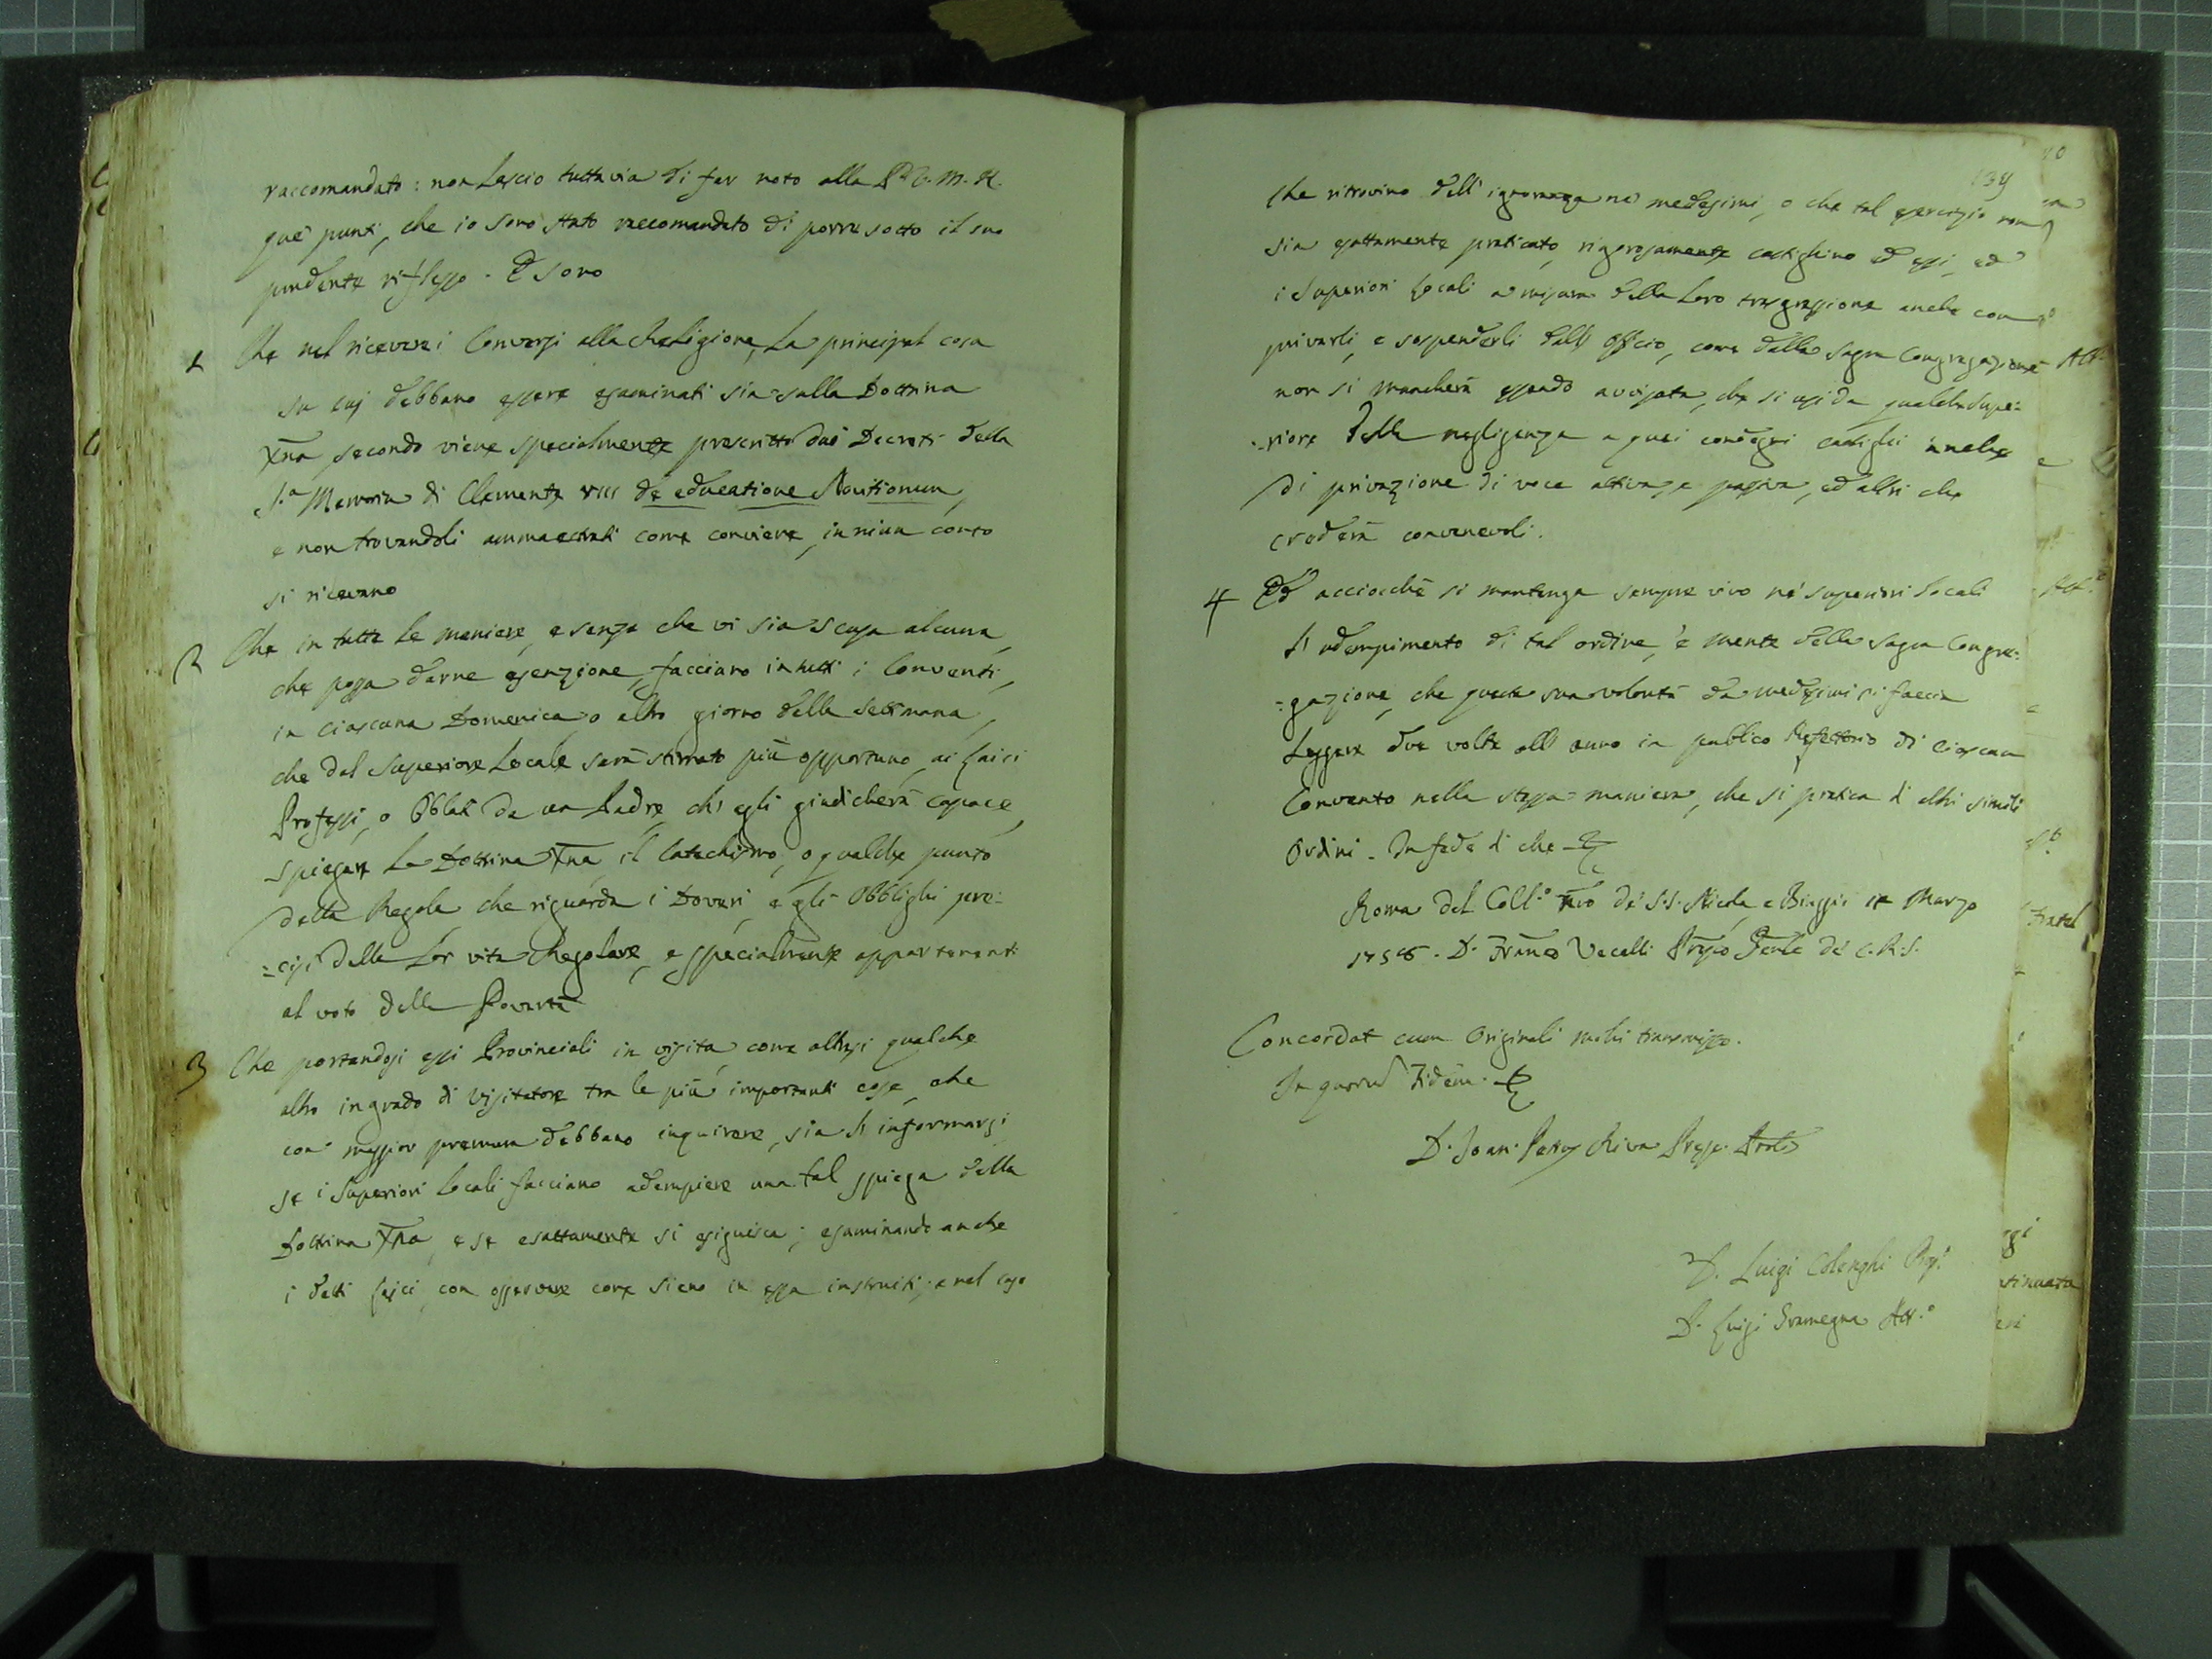 raccomandato: non lascio tuttavia di far noto alla P. V. M. R.
que' punti, che io sono stato raccomandato di porre sotto il suo
prudente riflesso. E sono
1 Che nel ricevere i Conversi alla Religione, la principal cosa
su cui debbano essere esaminati sia sulla Dottrina
Xna secondo viene specialmente prescritto dai Decreti della
S.a Memoria di Clemente VIII de educatione Novitiorum,
e non trovandoli ammaestrati come conviene, in niun conto
si ricevano
2 Che in tutte le maniere, e senza che vi sia scusa alcuna,
che possa darne esenzione, facciano in tutti i Conventi,
in ciascuna Domenica o altro giorno della Settimana,
che dal Superiore Locale sarà stimato più opportuno, ai Laici
Professi, o Oblati da un Padre, ch' egli giudicherà capace,
spiegare la Dottrina Xna, il Catechismo, o qualche punto
della Regola, che riguarda i Doveri, e gli Obblighi pre:
=cisi della lor vita Regolare, e specialmente appartenenti
al voto della Povertà
3 Che portandosi essi Provinciali in visita, come altresi qualche
altro in grado di Visitatore tra le più importanti cose, che
con maggior premura debbano inquirere, sia d' informarsi
se i Superiori Locali facciano adempiere una tal spiega della
Dottrina Xna, e se esattamente si esiguisca; esaminando anche
i detti Laici, con osservare come sieno in essa instruiti; e nel caso
139
che ritrovino dell' ignoranza ne' medesimi, o che tal esercizio non
sia esattamente praticato, rigorosamente castighino ed essi, ed
i Superiori Locali a misura della loro trasgressione anche con
privarli, e sospenderli dall' Officio, come dalla Sagra Congregazione
non si mancherà essendo avvisata, che si usi da qualche Supe:
=riore della negligenza a quei condegni castighi anche
di privazione di voce attiva, e passiva, ed altri che
crederà convenevoli.
4 Ed acciocchè si mantenga sempre vivo ne' Superiori Locali
l' adempimento di tal ordine, è mente della Sagra Congre:
=gazione, che questa sua volontà da medesimi si faccia
leggere due volte all' anno in publico Refettorio di ciascun
Convento nella stessa maniera, che si pratica d' altri simili
Ordini. In fede di che
Roma dal Coll.o nro de' S.S. Nicola, e Biaggio Marzo
D. Franco Vecelli Gnle de' C.R.S.
Concordat cum Originali mihi transmisso.
In quorum Fidem.
D. Joan. Petrus Riva
D. Luigi
D. Luigi Att.o